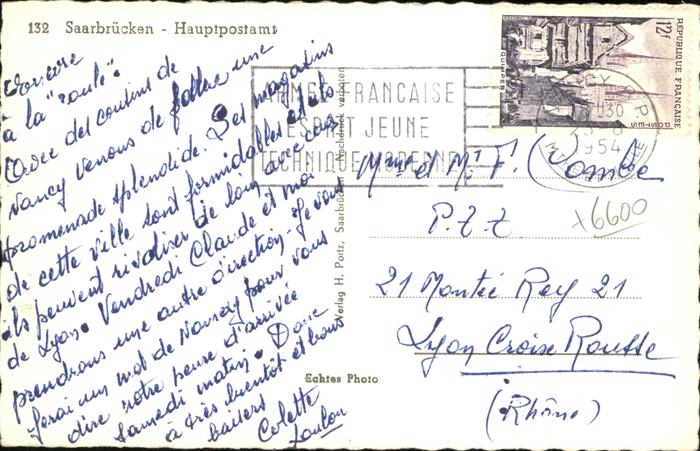 132 Saarbrücken - Hauptpostamt
Encore
à la "route".
Avec des cousins de
Nancy venons de faire une
promenade splendide. Les magasins
de cette ville sont formidables et
ils peuvent rivaliser de loin avec ceux
de Lyon. Vendredi Claude et moi
prendrons une autre direction. Je vous
ferai un mot de Nancy pour vous
dire notre heure d'arrivée
Samedi matin. Donc
à très bientôt et bons
baisers
Colette
Echtes Photo
Verlag H. Portz, Saarbrücken Nachdruck verboten
RÉPUBLIQUE FRANÇAISE
12f
POSTES
QUIMPER
ARMÉE FRANCAISE
ESPRIT JEUNE
TECHNIQUE MODERNE
1954
Mme et Mr F.
P.Z.Z
x6600
21 Montée Rey 21
Lyon Croix Rousse
(Rhône)